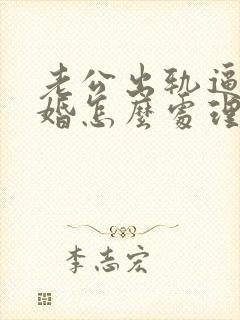 老公出轨逼
婚怎麼處理
李志宏